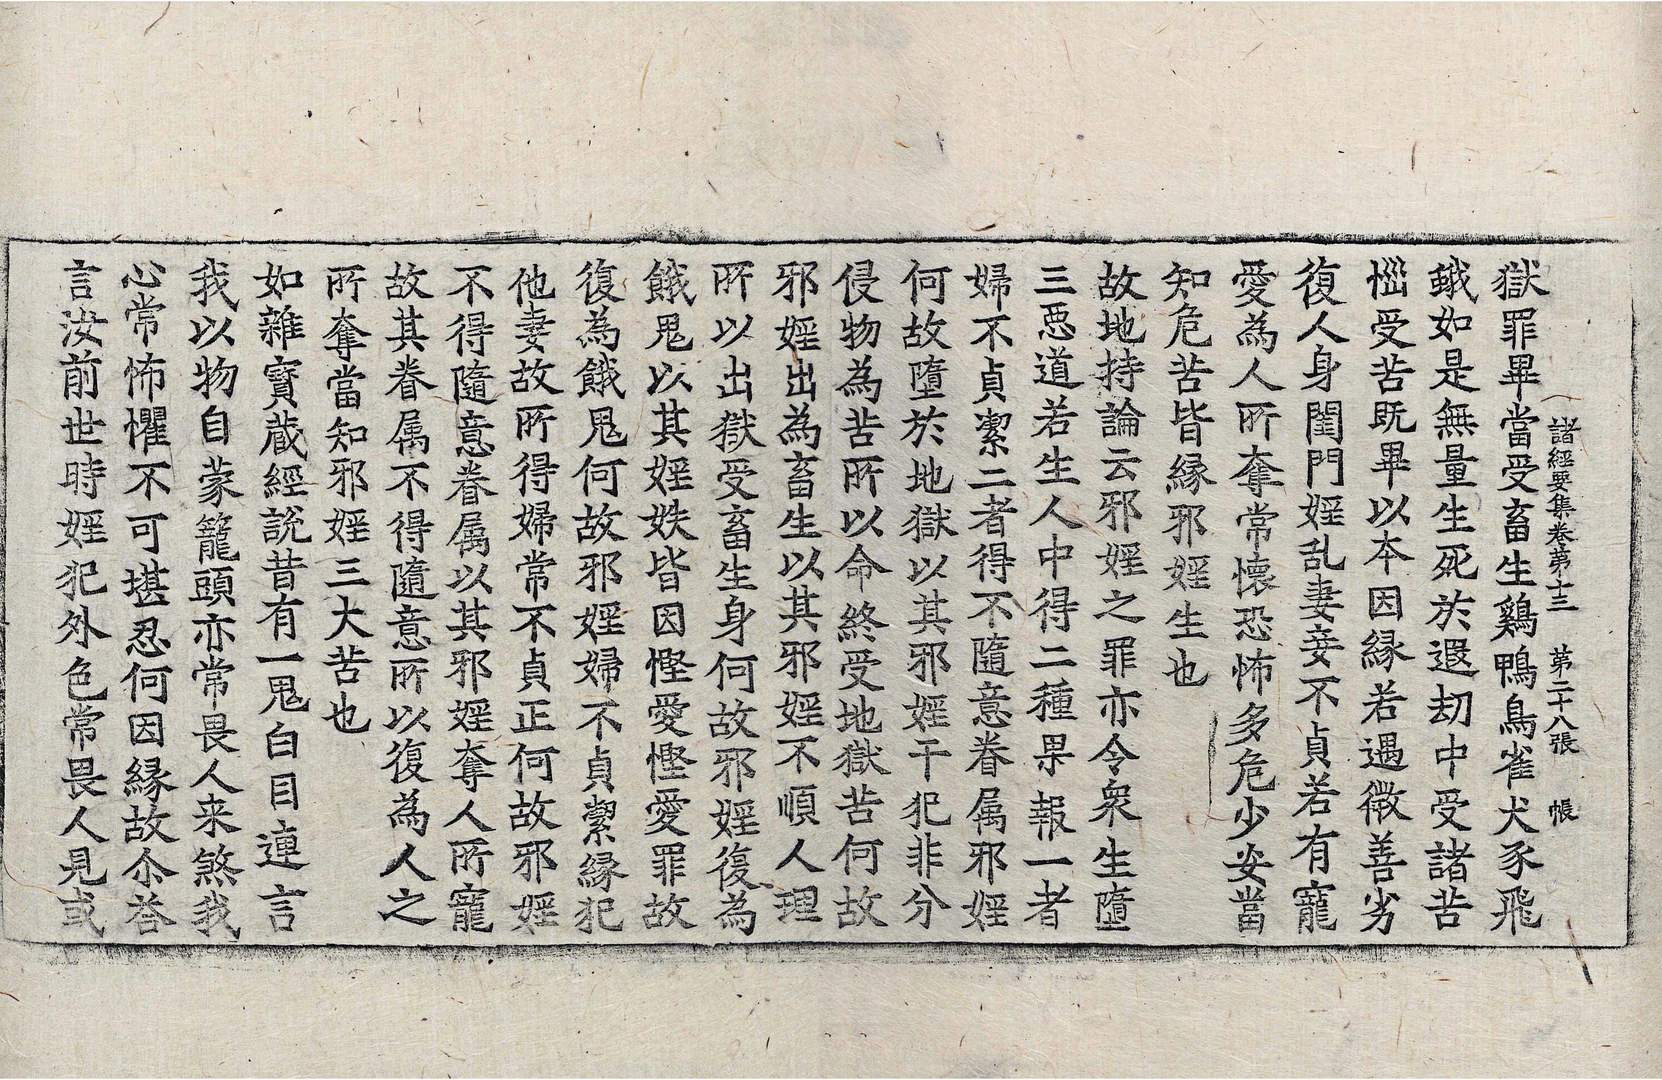 諸經要集卷第十三　第二十八張　帳
獄罪畢當受畜生鷄鴨鳥雀犬豕飛
蛾如是無量生死於遐劫中受諸苦
惱受苦既畢以本因縁若遇微善劣
復人身閨門婬乱妻妾不貞若有寵
愛為人所奪常懷恐怖多危少安當
知危苦皆縁邪婬生也
故地持論云邪婬之罪亦令衆生墮
三惡道若生人中得二種果報一者
婦不貞潔二者得不隨意眷属邪婬
何故墮於地獄以其邪婬干犯非分
侵物為苦所以命終受地獄苦何故
邪婬出為畜生以其邪婬不順人理
所以出獄受畜生身何故邪婬復為
餓鬼以其婬妷皆因慳愛慳愛罪故
復為餓鬼何故邪婬婦不貞潔縁犯
他妻故所得婦常不貞正何故邪婬
不得隨意眷属以其邪婬奪人所寵
故其眷属不得隨意所以復為人之
所奪當知邪婬三大苦也
如雜寶蔵經說昔有一鬼白目連言
我以物自蒙籠頭亦常畏人来煞我
心常怖懼不可堪忍何因縁故尒荅
言汝前世時婬犯外色常畏人見或